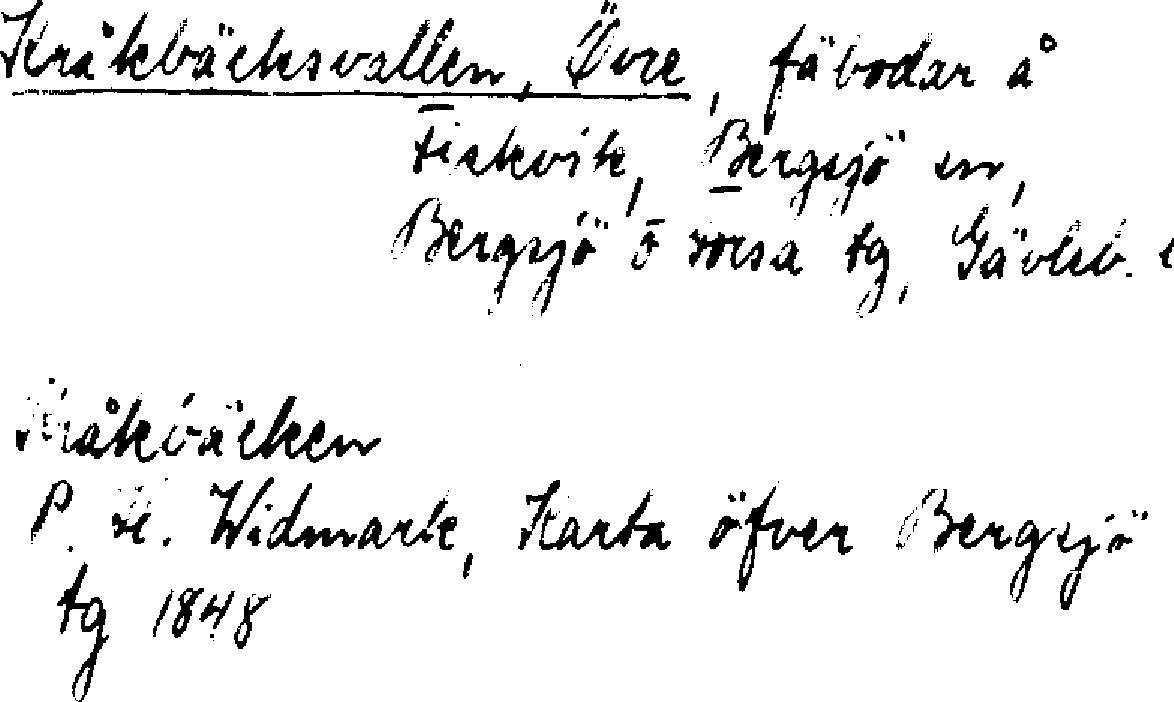 Kråkbäcksvallen, Övre, fäbodar å
Fiskvik, Bergsjö sn,
Bergsjö o Forsa tg, Gävleb. l
Kråkbäcken
P. H. Widmark, Karta öfver Bergsjö
tg 1848